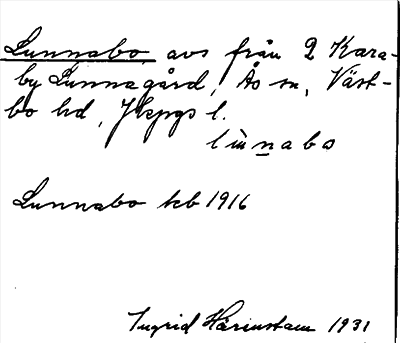 Lunnabo avs från 2 Kara-
by Lunnagård, Ås sn, Väst-
bo hd, Jkpgs l.
lùnabo
Lunnabo kb 1916
Ingrid Härenstam 1931